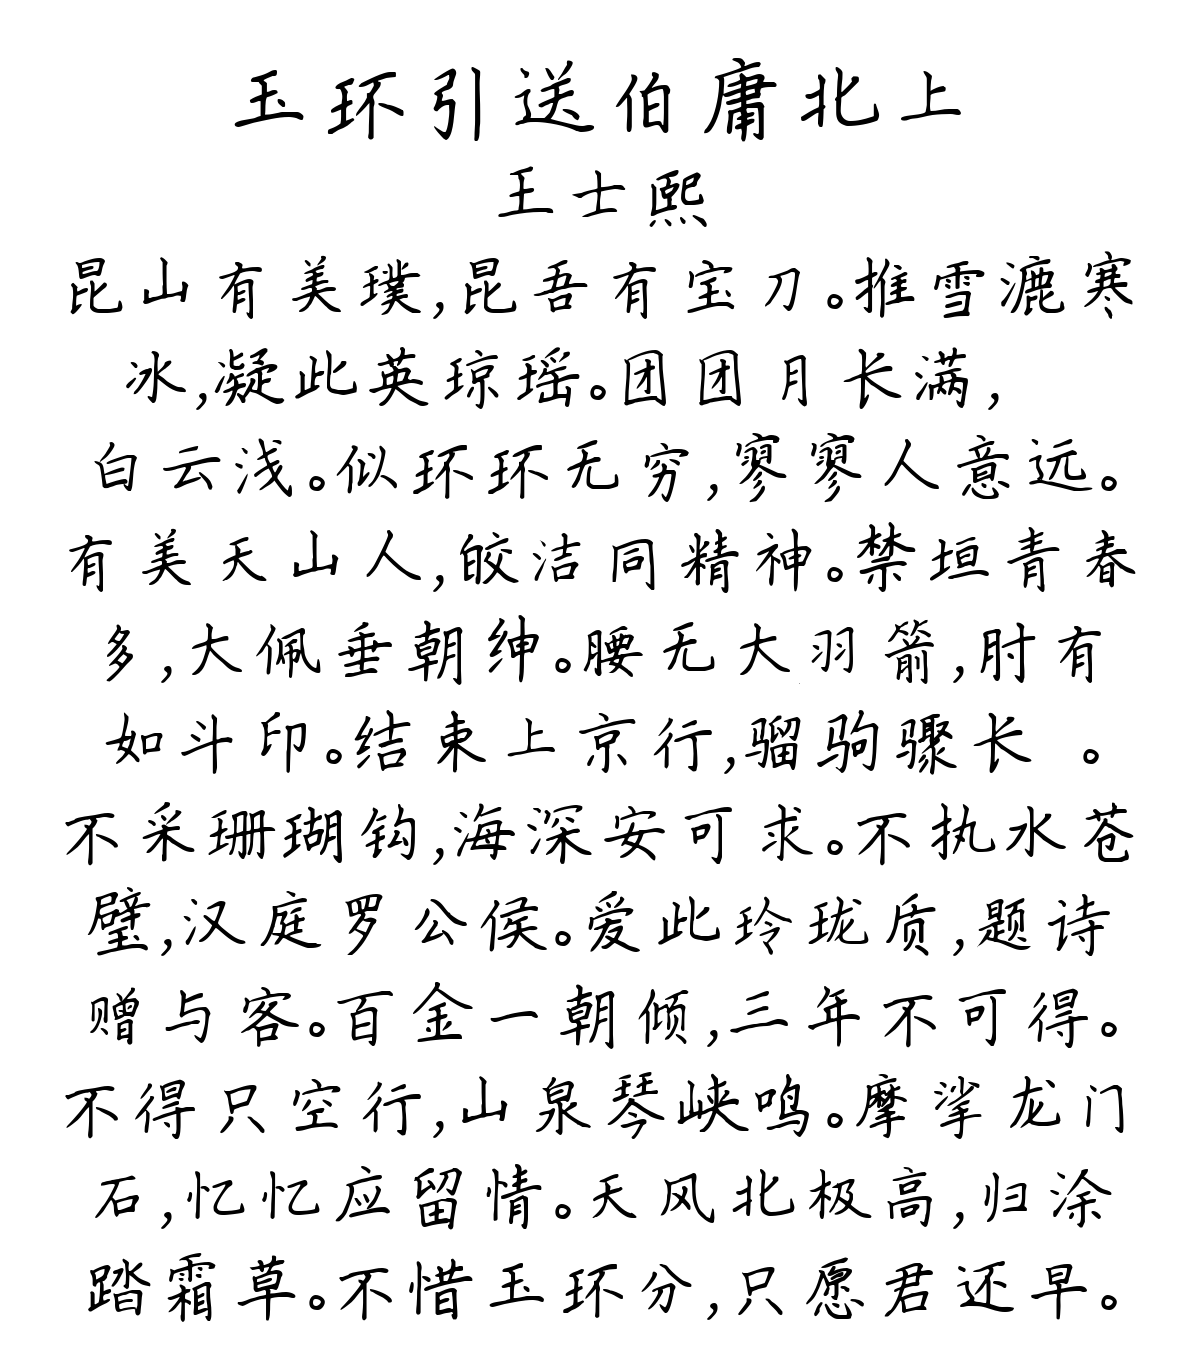 玉环引送伯庸北上
王士熙
昆山有美璞,昆吾有宝刀。推雪漉寒
冰,凝此英琼瑶。团团月长满,
白云浅。似环环无穷,寥寥人意远。
有美天山人,皎洁同精神。禁垣青春
多,大佩垂朝绅。腰无大羽箭,肘有
如斗印。结束上京行,骝驹骤长 。
不采珊瑚钩,海深安可求。不执水苍
璧,汉庭罗公侯。爱此玲珑质,题诗
赠与客。百金一朝倾,三年不可得。
不得只空行,山泉琴峡鸣。摩挲龙门
石,忆忆应留情。天风北极高,归涂
踏霜草。不惜玉环分,只愿君还早。